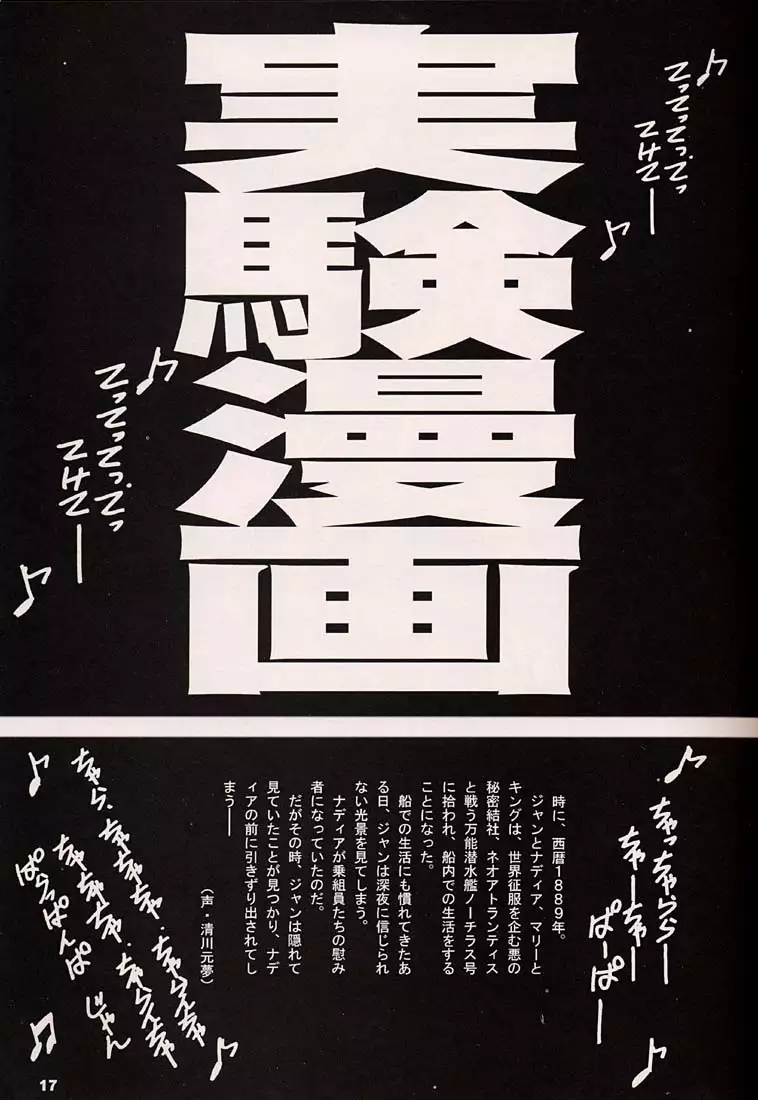 実験漫画
♪
てってってってっ
てけてー
♪
♪
てってってってっ
てけてー
♪
時に、西暦1889年。
ジャンとナディア、マリーと
キングは、世界征服を企む悪の
秘密結社、ネオアトランティス
と戦う万能潜水艦ノーチラス号
に拾われ、船内での生活をする
ことになった。
船での生活にも慣れてきたあ
る日、ジャンは深夜に信じられ
ない光景を見てしまう。
ナディアが乗組員たちの慰み
者になっていたのだ。
だがその時、ジャンは隠れて
見ていたことが見つかり、ナデ
ィアの前に引きずり出されてし
まう──
（声・清川元夢）
♪
ちゃっちゃららー
ちゃーちゃー
ぱーぱー
♪
♪
ぱらっぱんぱ
じゃん
♪
♫
17